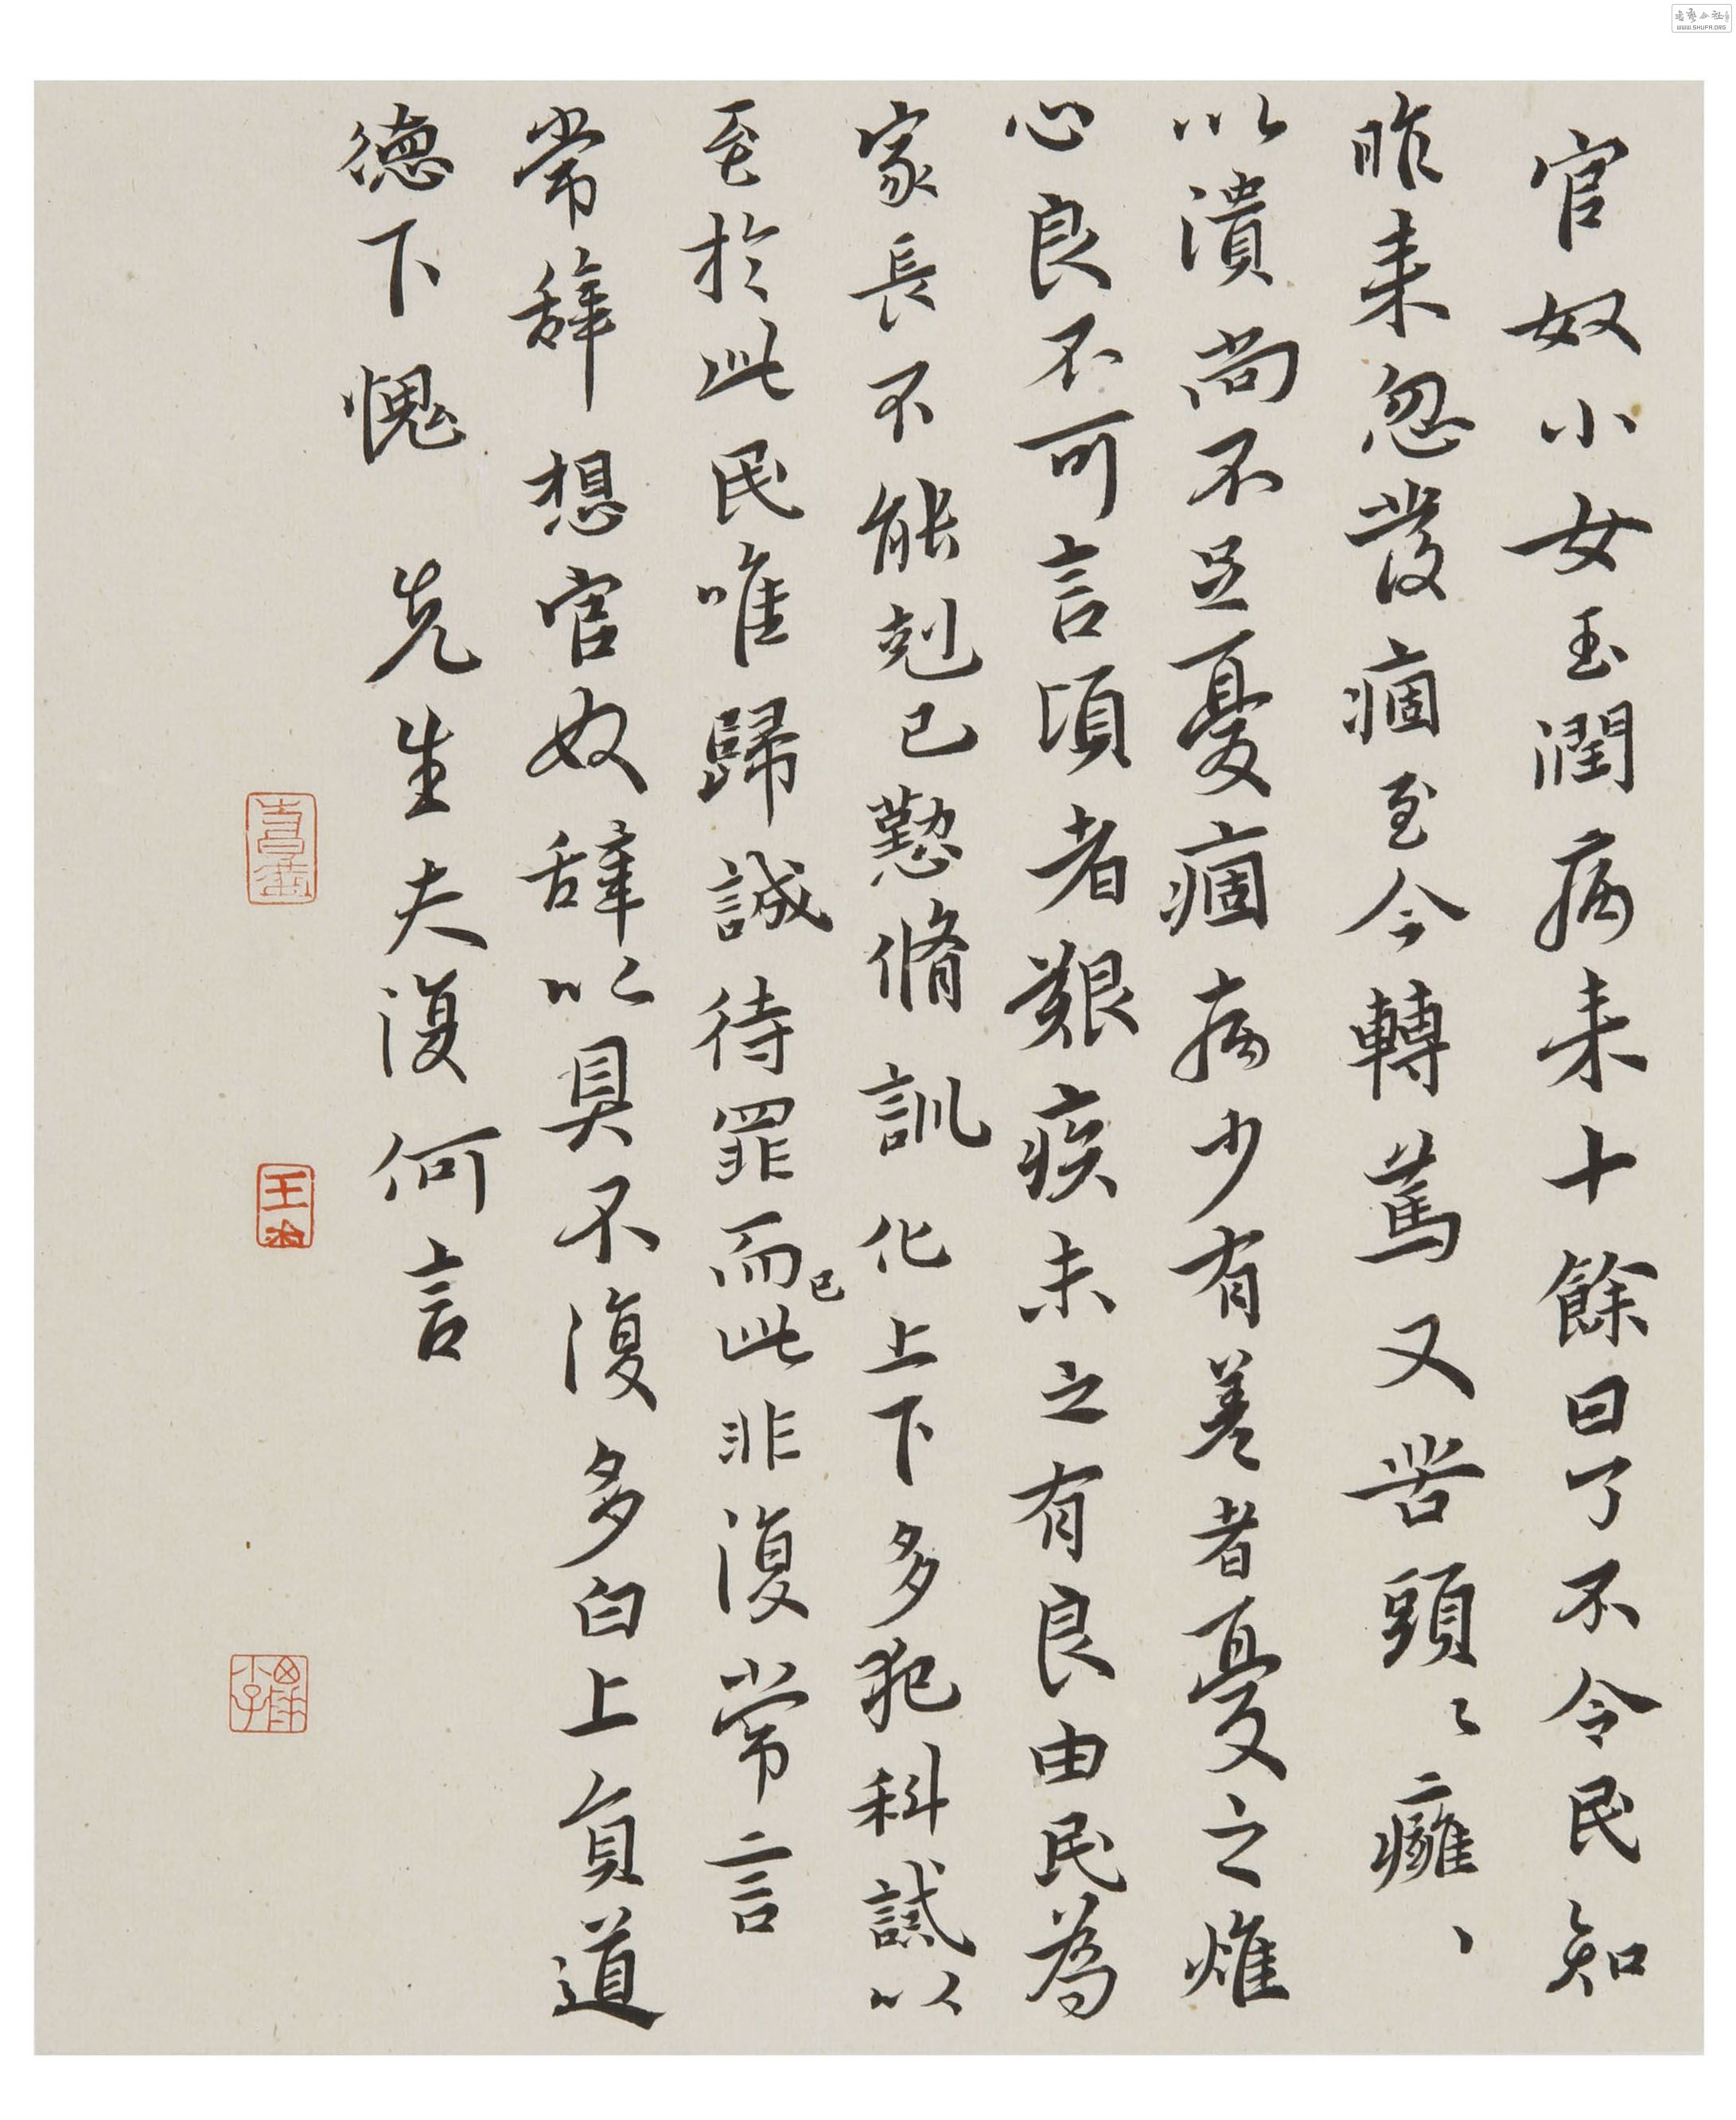 官奴小女玉潤病来十餘日了不令民知
昨来忽發痼至今轉篤又苦頭〻癰〻
以潰尚不足憂痼病少有差者憂之燋
心良不可言頃者艱疾未之有良由民為
家長不能剋己懃脩訓化上下多犯科誡以
至於此民唯歸誠待罪而已此非復常言
常辭想官奴辭以具不復多白上負道
德下愧先生夫復何言
WWW.SHUFA.ORG